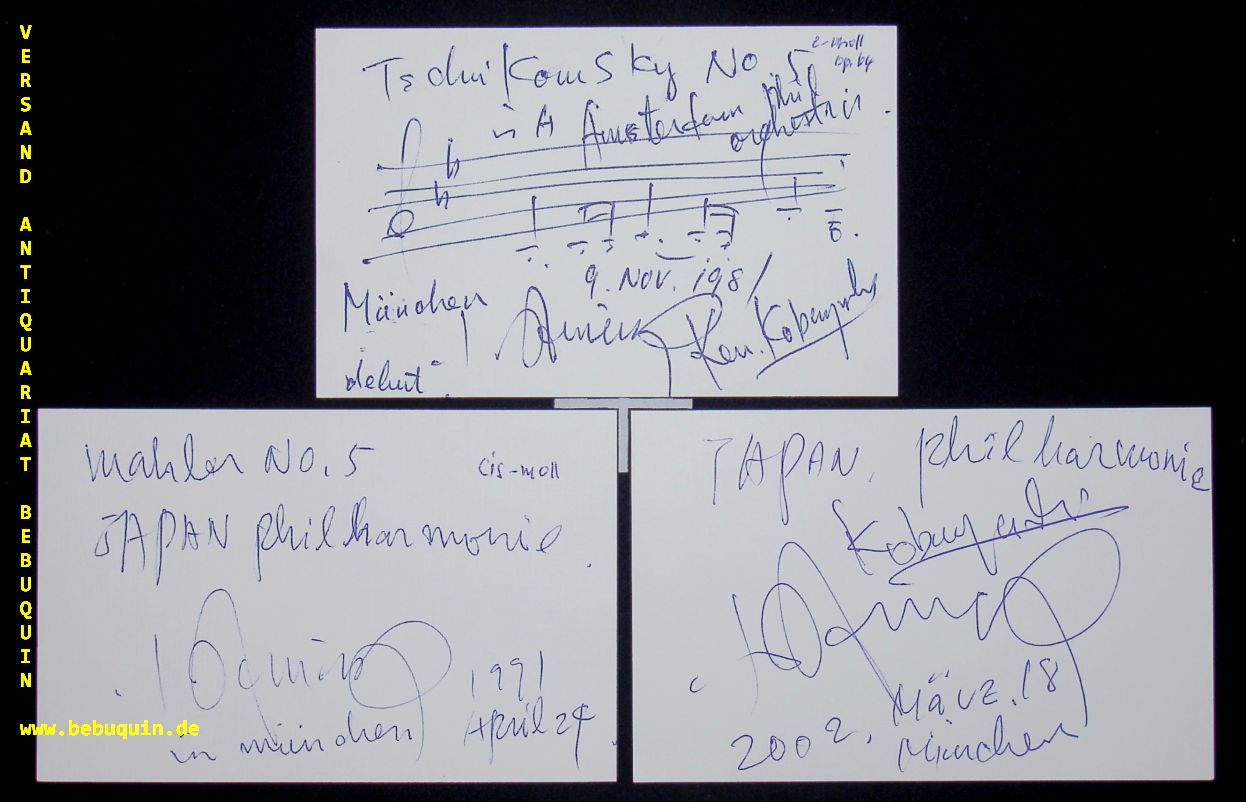 VERSAND ANTIQUARIAT BEBUQUIN
www.bebuquin.de
Tschaikowsky No 5 e-moll
op. 64
Amsterdam Phil
orchestra.
9. Nov. 1981
München
debut.
Ken. Kobayashi
Mahler No. 5 cis-moll
JAPAN philharmonie.
1991
in münchen April 24.
JAPAN. philharmonie
Kobayashi
März. 18
2002. München